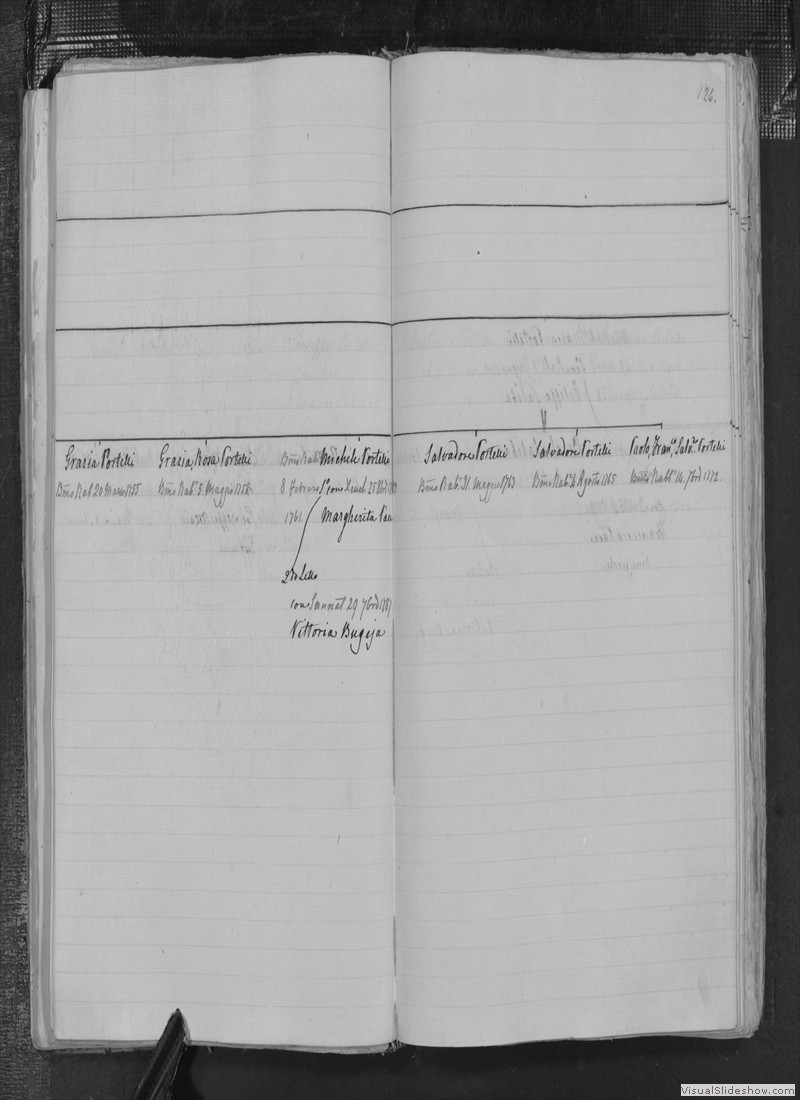 126.
Grazia Portelli
Bmo Rab. 20 Marzo 1755
Grazia, Rosa Portelli
Bmo Rabo 5. Maggio 1758
Bmo Rabo Michele Portelli
8 Febraro 1o con Xeuch. 25
1761. Margherita
2do Letto
con Sannat 29 7bre
Vittoria Bugeja
Salvadore Portelli
Bmo Rabo 31. Maggio 1763
Salvadore Portelli
Bmo Rabo Agosto 1765
Paolo, Frano, Salvre Portelli
Bmo Rabo 14. 7bre 1772.
VisualSlideshow.com